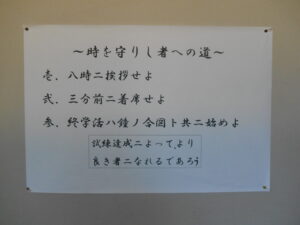 ～時を守りし者への道～
壱．八時ニ挨拶せよ
弐．三分前ニ着席せよ
参．終学活ハ鐘ノ合図ト共ニ始めよ
試練達成ニよって、より
良き者ニなれるであろう